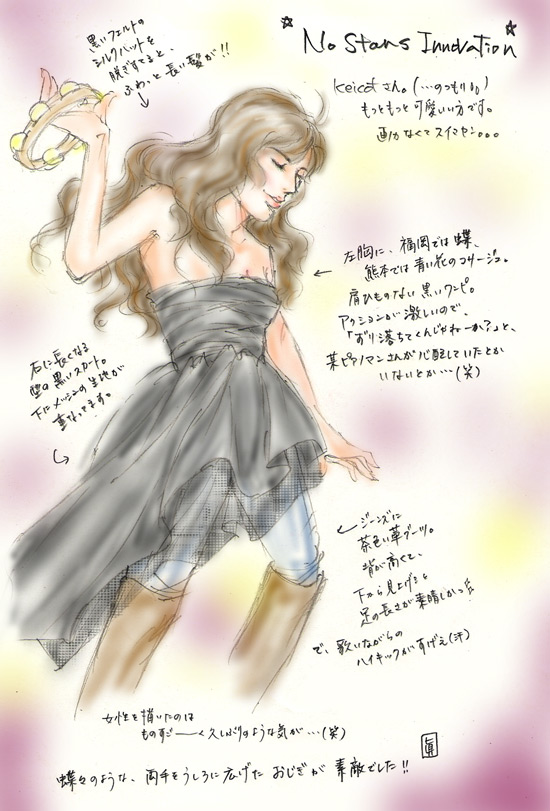 黒いフェルトの
シルクハットを
脱ぎすてると、
ふわっと長い髪が!!
☆No Stars Innovation☆
keicoさん。(…のつもり)
もっともっと可愛い方です。
画力なくてスイマセン。。。
左胸に、福岡では蝶、
熊本では青い花のコサージュ。
肩ひものない黒いワンピ。
アクションが激しいので、
「ずり落ちてくんじゃねーか?」と、
某ピアノマンさんが心配していたとか
いないとか…(笑)
右に長くなる
型の黒いスカート。
下にメッシュの生地が
重なってます。
ジーンズに
茶色い革ブーツ。
背が高くて、
下から見上げると
足の長さが素晴しかった
で、歌いながらの
ハイキックがすげぇ(汗)
女性を描いたのは
ものすごーく久しぶりのような気が…(笑)
眞
蝶々のような、両手をうしろに広げた おじぎが 素敵でした!!